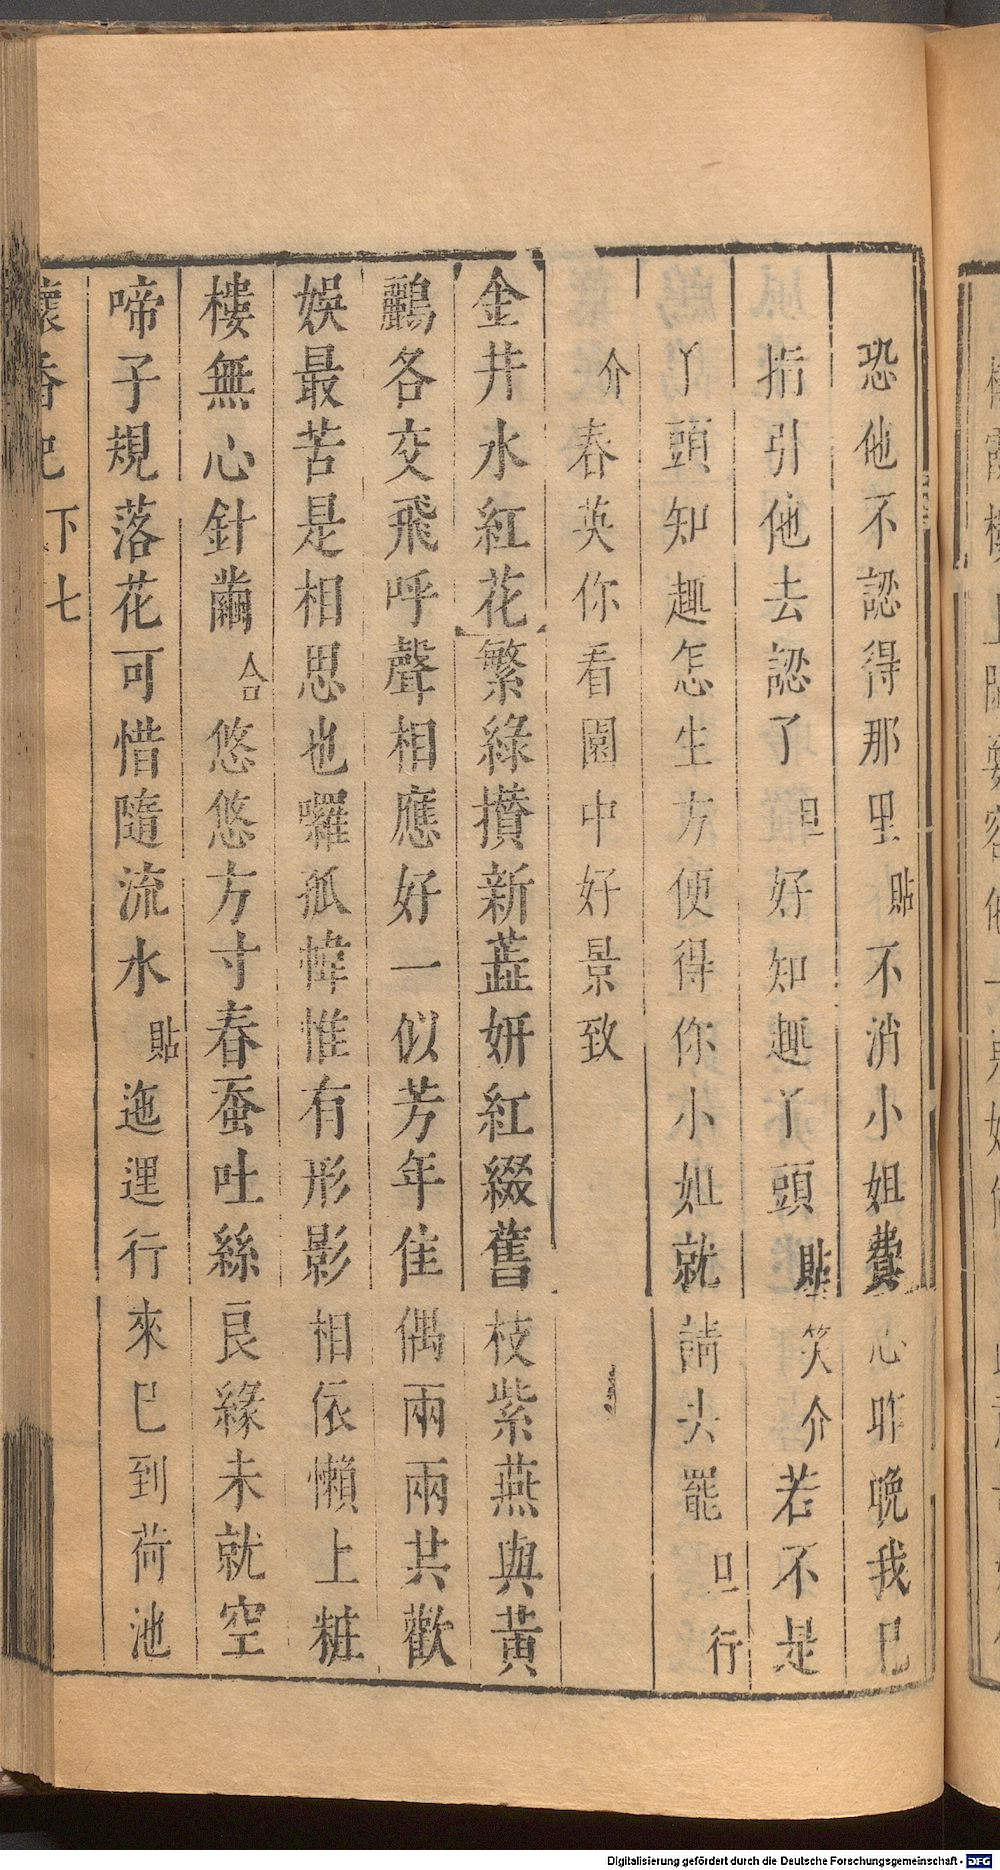 恐他不認得那里貼不消小姐費心昨晚我已
指引他去認了旦好知趣丫頭貼笑介若不是
丫頭知趣怎生方便得你小姐就請去罷旦行
介春英你看園中好景致
金井水紅花繁綠攢新蕋妍紅綴舊枝紫燕與黃
鸝各交飛呼聲相應好一似芳年佳偶兩兩共歡
娛最苦是相思也囉孤幃惟有形影相依懶上粧
樓無心針黹合悠悠方寸春蚕吐絲良緣未就空
啼子規落花可惜隨流水貼迤逕行來已到荷池
懷香記 下 七
Digitalisierung gefördert durch die Deutsche Forschungsgemeinschaft - DFG